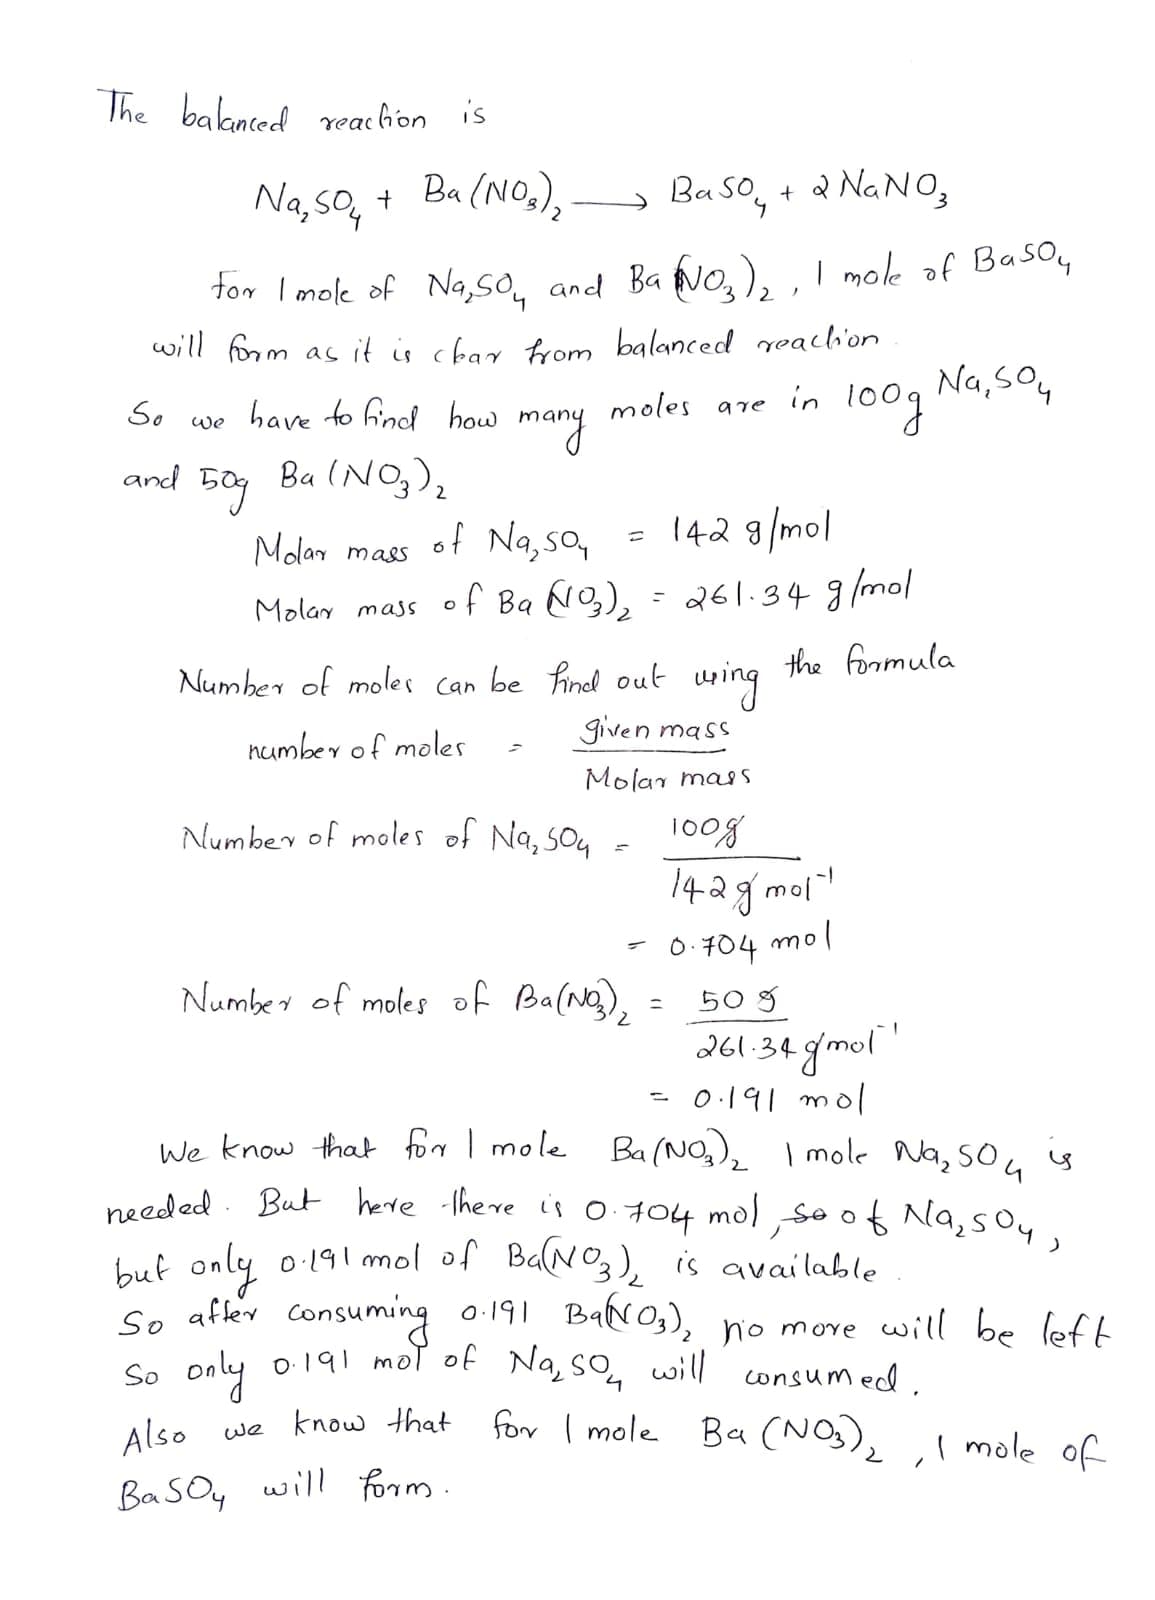 The balanced reaction is
Na₂SO₄ + Ba(NO₃)₂ ⟶ BaSO₄ + 2NaNO₃
For 1 mole of Na₂SO₄ and Ba(NO₃)₂, 1 mole of BaSO₄
will form as it is clear from balanced reaction.
So we have to find how many moles are in 100g Na₂SO₄
and 50g Ba(NO₃)₂
Molar mass of Na₂SO₄ = 142 g/mol
Molar mass of Ba(NO₃)₂ = 261.34 g/mol
Number of moles can be find out using the formula
number of moles = given mass
Molar mass
Number of moles of Na₂SO₄ = 100g
142g mol⁻¹
= 0.704 mol
Number of moles of Ba(NO₃)₂ = 50g
261.34 g mol⁻¹
= 0.191 mol
We know that for 1 mole Ba(NO₃)₂ 1 mole Na₂SO₄ is
needed. But here there is 0.704 mol, so of Na₂SO₄,
but only 0.191 mol of Ba(NO₃)₂ is available.
So after consuming 0.191 Ba(NO₃)₂ no more will be left
So only 0.191 mol of Na₂SO₄ will consumed.
Also we know that for 1 mole Ba(NO₃)₂, 1 mole of
BaSO₄ will form.